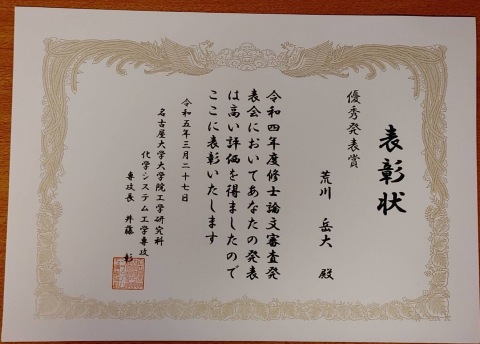 表彰状
優秀発表賞
荒川 岳大 殿
令和四年度修士論文審査発
表会においてあなたの発表
は高い評価を得ましたので
ここに表彰いたします
令和五年三月二十七日
名古屋大学大学院工学研究科
化学システム工学専攻
専攻長 井藤 彰